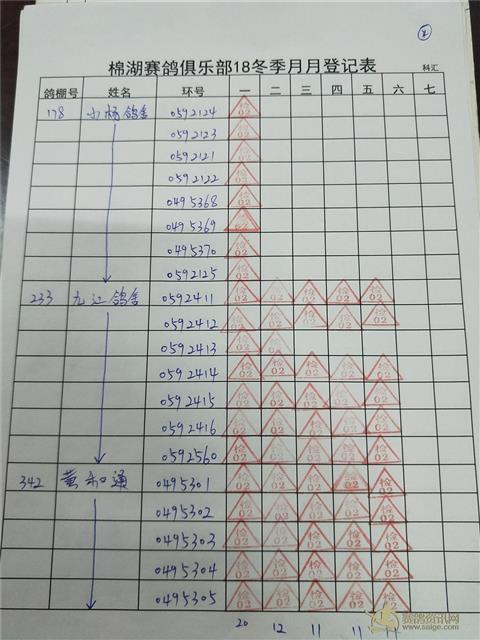 棉湖赛鸽俱乐部18冬季月月登记表
科汇
鸽棚号 姓名 环号 一 二 三 四 五 六 七
178 小杨鸽舍 0592124 检02
0592123 检02
0592121 检02
0592122 检02
0495368 检02
0495369 检02
0495370 检02
0592125 检02
233 九江鸽舍 0592411 检02 检02 检02 检02 检02
0592412 检02 检02 检02 检02 检02
0592413 检02 检02
0592414 检02 检02 检02 检02 检02
0592415 检02 检02 检02 检02 检02
0592416 检02 检02 检02 检02 检02
0592560 检02 检02 检02 检02 检02
342 黄和通 0495301 检02 检02 检02 检02 检02
0495302 检02 检02 检02 检02 检02
0495303 检02 检02 检02 检02 检02
0495304 检02 检02 检02 检02 检02
0495305 检02 检02 检02 检02 检02
20 12 11 11 11
赛鸽资讯网
www.saige.com